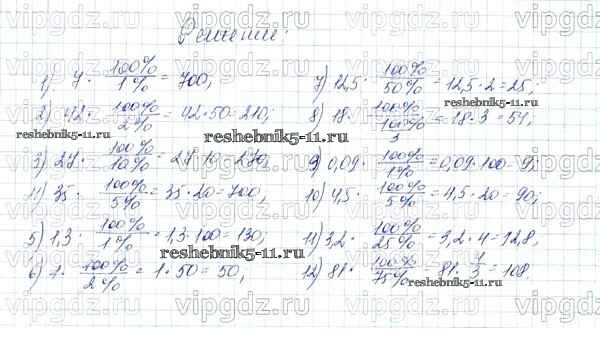 vipgdz.ru vipgdz.ru vipgdz.ru vipgdz.ru
Решение:
1) 7 · 100%/1% = 700;
2) 42 · 100%/2% = 42 · 50 = 210;
3) 27 · 100%/10% = 27 · 10 = 270;
4) 35 · 100%/5% = 35 · 20 = 700,
5) 1,3 · 100%/1% = 1,3 · 100 = 130;
6) 1 · 100%/2% = 1 · 50 = 50,
7) 12,5 · 100%/50% = 12,5 · 2 = 25;
8) 18 · 100%/100%/3 = 18 · 3 = 54;
9) 0,09 · 100%/1% = 0,09 · 100 = 9;
10) 4,5 · 100%/5% = 4,5 · 20 = 90;
11) 3,2 · 100%/25% = 3,2 · 4 = 12,8,
12) 81 · 100%/75% = 81 · 4/3 = 108.
reshebnik5-11.ru
reshebnik5-11.ru
reshebnik5-11.ru
reshebnik5-11.ru
reshebnik5-11.ru
vipgdz.ru vipgdz.ru vipgdz.ru vipgdz.ru